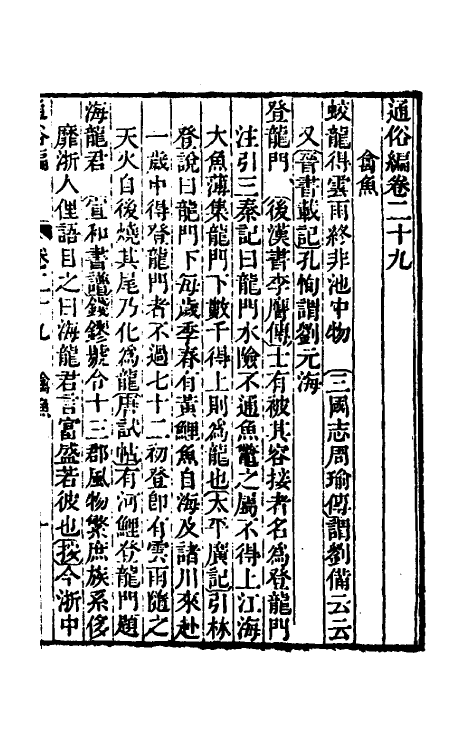 通俗編卷二十九
禽魚
蛟龍得雲雨終非池中物　三國志周瑜傳謂劉備云云
又晉書載記孔恂謂劉元海
登龍門　後漢書李膺傳士有被其容接者名為登龍門
注引三秦記曰龍門水險不通魚鼈之屬不得上江海
大魚薄集龍門下數千得上則為龍也太平廣記引林
登說曰龍門下每歲季春有黃鯉魚自海及諸川來赴
一歲中得登龍門者不過七十二初登即有雲雨隨之
天火自後燒其尾乃化為龍唐試帖有河鯉登龍門題
海龍君　宣和書譜錢鏐據合十三郡風物繁庶族系侈
靡浙人俚語目之曰海龍君言富盛若彼也按今浙中
通俗編　卷二十九　禽魚　一